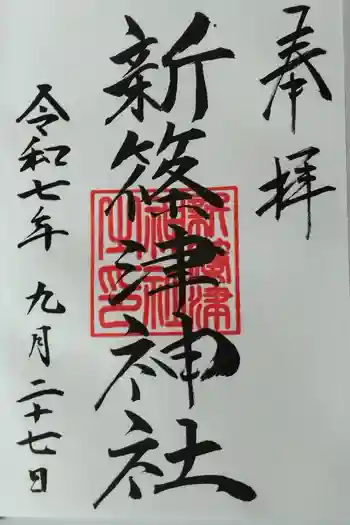 奉拝
新篠津神社
新篠津神社之印
令和七年 九月二十七日